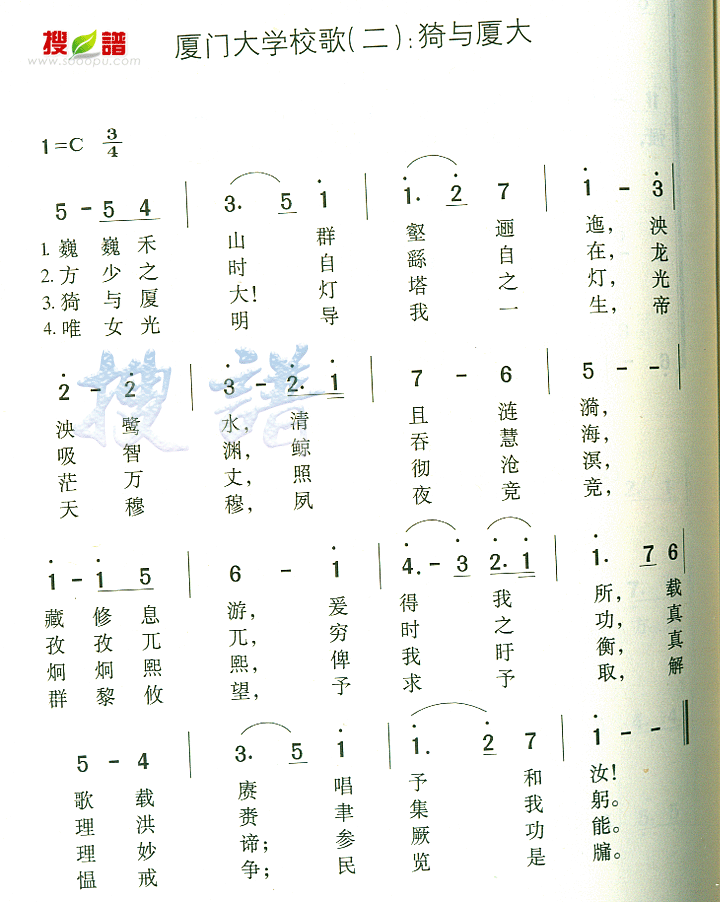 搜谱
www.sooopu.com
厦门大学校歌(二):猗与厦大
1=C 3/4
5 - 5 4 | 3. 5 1 | 1. 2 7 | 1 - 3
1. 巍 巍 禾 山 群 壑 逦 迤, 泱
2. 方 少 之 时 自 繇 自 在, 龙
3. 猗 与 厦 大! 灯 塔 之 灯, 光
4. 唯 女 光 明 导 我 一 生, 帝
2 - 2 | 3 - 2. 1 | 7 - 6 | 5 - -
泱 鹭 水, 清 且 涟 漪,
吸 智 渊, 鲸 吞 慧 海,
茫 万 丈, 照 彻 沧 溟,
天 穆 穆, 夙 夜 竞 竞,
1 - 1 5 | 6 - 1 | 4. - 3 2. 1 | 1. 7 6
藏 修 息 游, 爰 得 我 所, 载
孜 孜 兀 兀, 穷 时 之 功, 真
炯 炯 熙 熙, 俾 我 盱 衡, 真
群 黎 攸 望, 予 求 予 取, 解
5 - 4 | 3. 5 1 | 1. 2 7 | 1 - -
歌 载 赓 唱 予 和 汝!
理 洪 赉 聿 集 我 躬。
理 妙 谛; 参 厥 功 能。
愠 戒 争; 民 览 是 牖。
搜谱